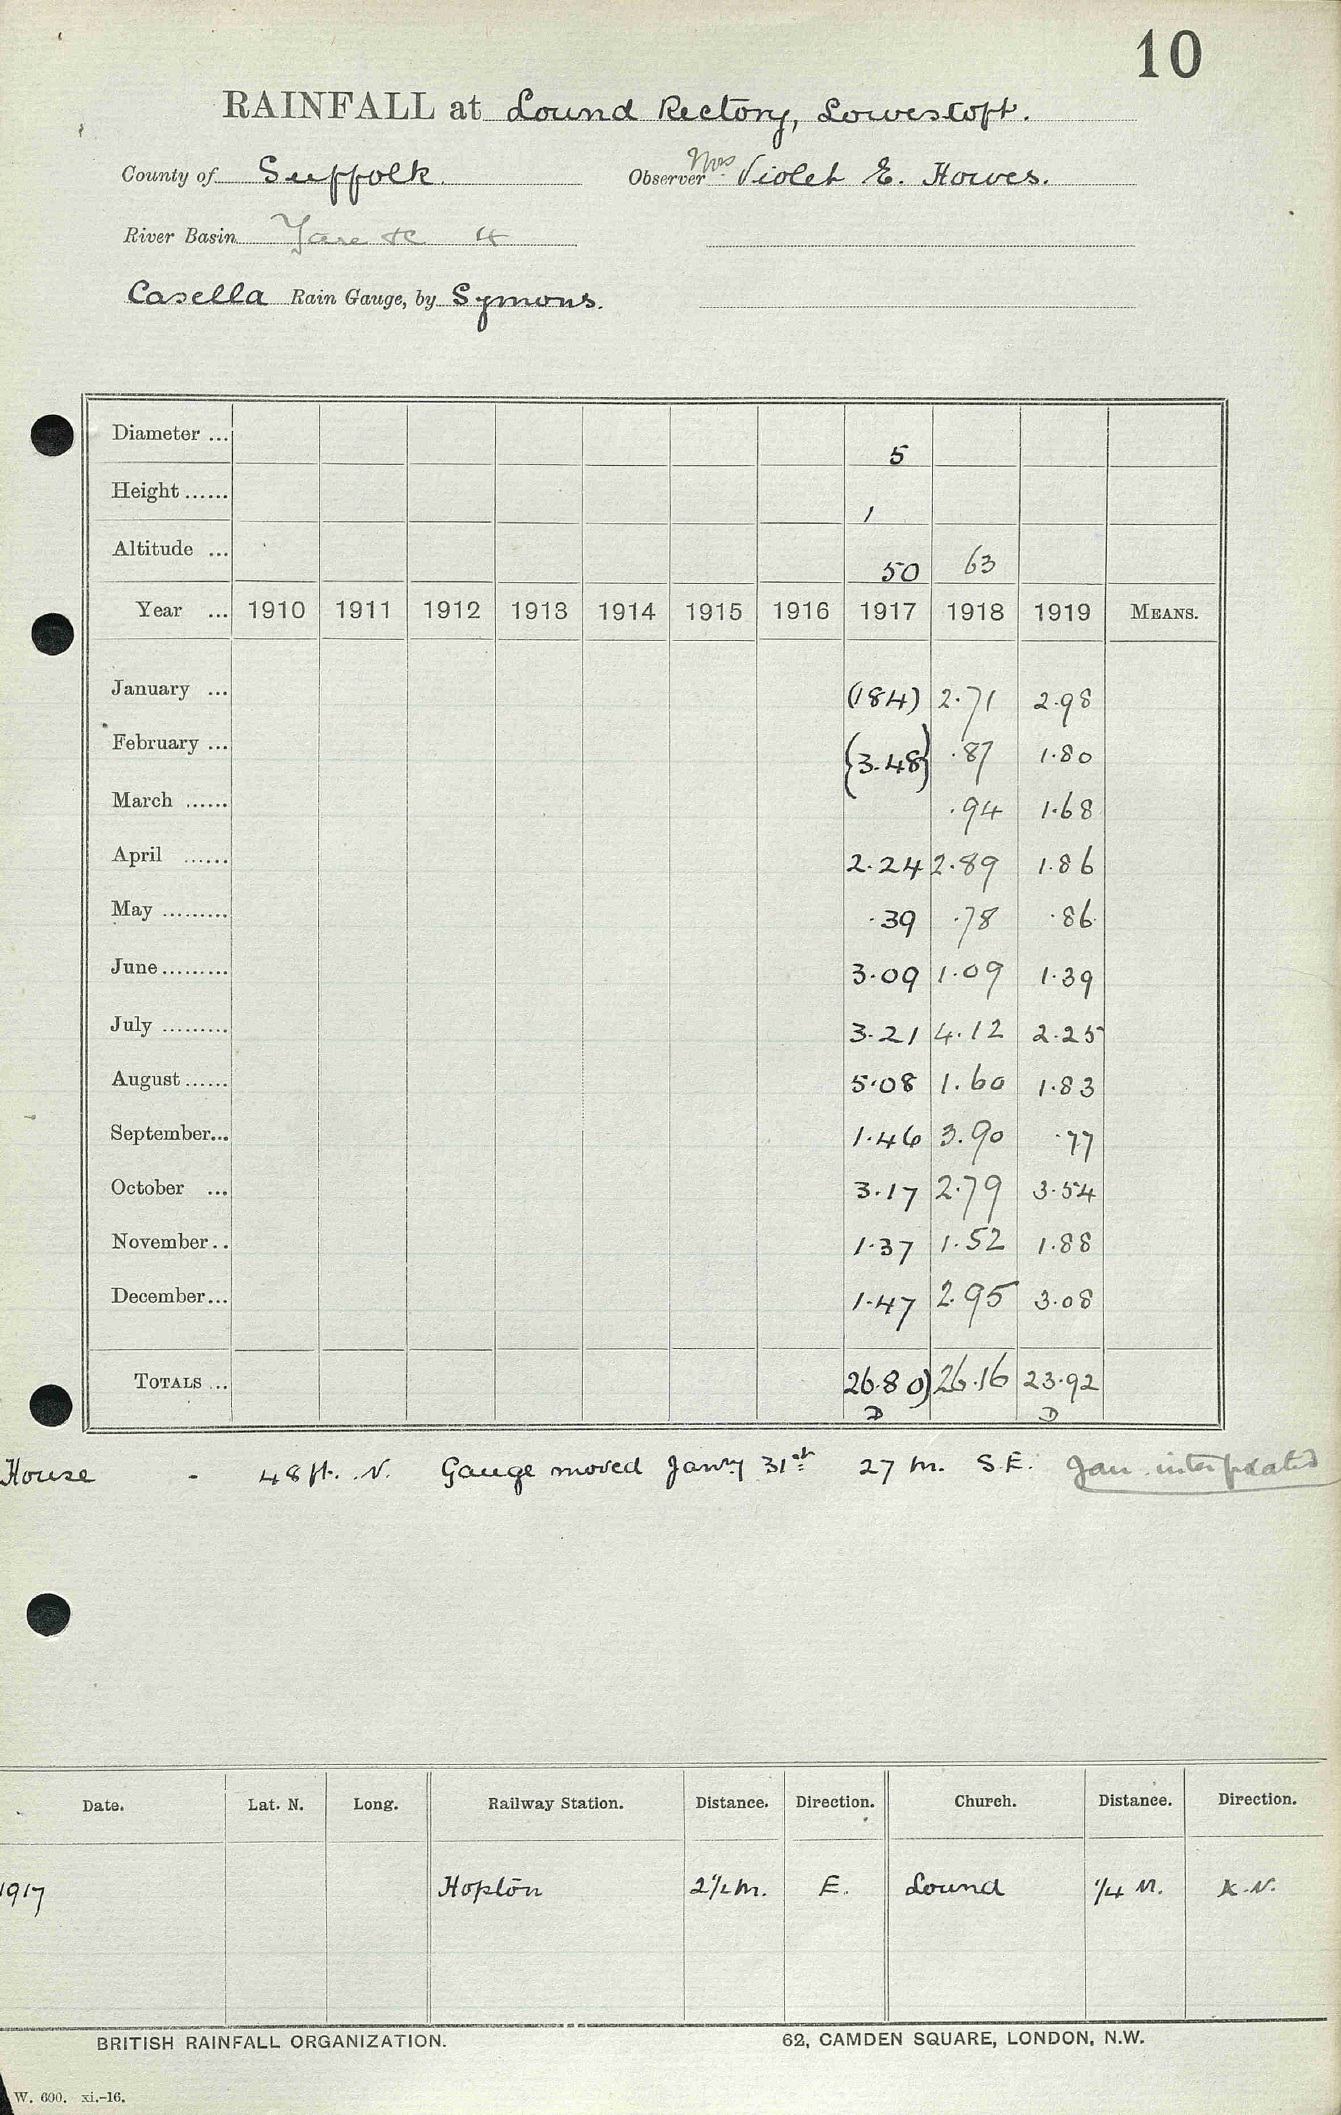 10
RAINFALL at Lound Rectory, Lowestoft.
County of Suffolk. Observer Mrs Violet E. Howes.
River Basin Yare &c 4
Casella Rain Gauge, by Symons.
Diameter ... 5
Height ...... 1
Altitude ... 50 63
Year ... 1910 1911 1912 1913 1914 1915 1916 1917 1918 1919 MEANS.
January ... (184) 2.71 2.98
February ... {3.48} .87 1.80
March ...... .94 1.68
April ...... 2.24 2.89 1.86
May ......... .39 .78 .86
June ......... 3.09 1.09 1.39
July ......... 3.21 4.12 2.25
August ...... 5.08 1.60 1.83
September... 1.46 3.90 .77
October ... 3.17 2.79 3.54
November .. 1.37 1.52 1.88
December... 1.47 2.95 3.08
TOTALS ... 26.80) 26.16 23.92
D D
House - 48 ft. N. Gauge moved Jany 31st 27 in. S.E. Jan interpolated
Date. Lat. N. Long. Railway Station. Distance. Direction. Church. Distance. Direction.
1917 Hopton 2½ m. E. Lound ¼ M. N.
BRITISH RAINFALL ORGANIZATION. 62, CAMDEN SQUARE, LONDON, N.W.
W. 600. xi.-16.